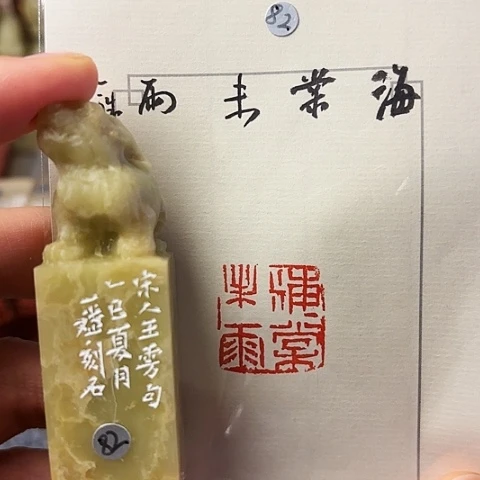 82
海棠未雨
海棠
未雨
宋人王雱句
乙巳夏月
一刻石
82